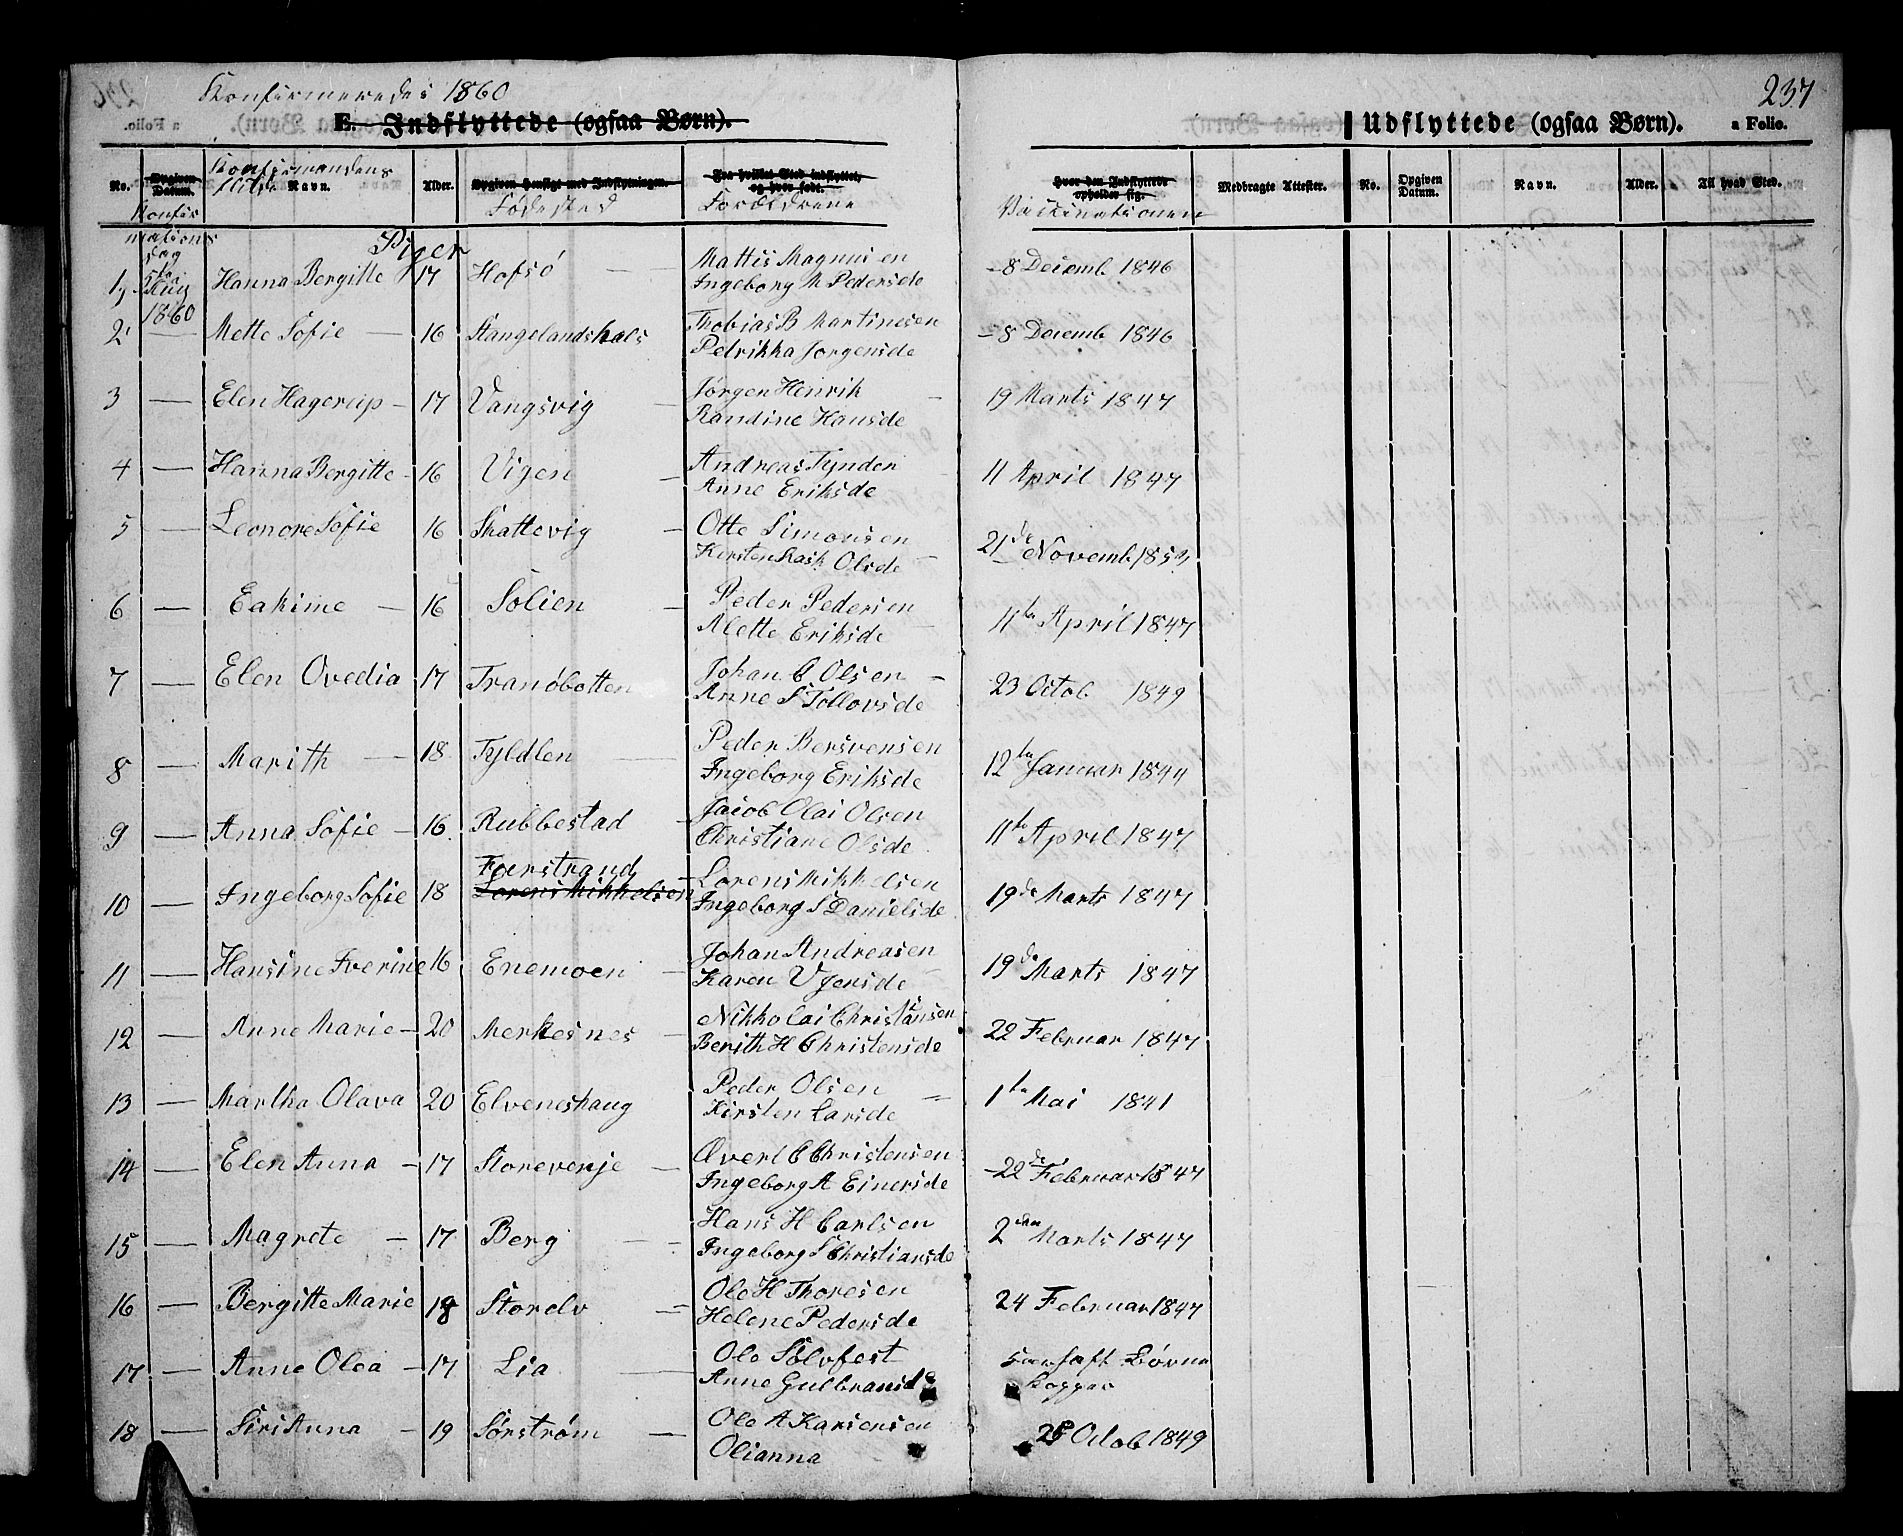 Konfirmerede i 1860
237
E. Indflyttede (ogsaa Børn).
Udflyttede (ogsaa Børn).
a Folio.
No. Opgiven Datum. Konfirmandens Navn. Alder. Opgiven Hensigt med Indflytningen. Fra hvilket Sted indflyttet, og hvor født. Hvor den Indflyttede opholder sig. Medbragte Attester. No. Opgiven Datum. Navn. Alder. Til hvad Sted.
Konfirmations dag Fødested Forældrene Vaksinationen
Piger
1, 1860 Hanna Bergitte 17 Hofsö Mattis Magnusen Ingeborg M Pedersde 8 Decemb 1846
2 Mette Sofie 16 Stangelandshals Thobias B Martinesen Petrikka Jorgensde 8 Decemb 1846
3 Elen Hagerup 17 Vangsvig Jørgen Henrik Randine Hansde 19 Marts 1847
4 Hanna Bergitte 16 Vigen Andreas Tynden Anne Eriksde 11 April 1847
5 Leonore Sofie 16 Skattevig Otte Simonsen Kirsten Rask Olsde 21de Novemb 1853
6 Eakime 16 Solien Peder Pedersen Alette Eriksde 11te April 1847
7 Elen Ovedia 17 Tranöbotten Johan C Olsen Anne S Tollovsde 23 Octob 1849
8 Marith 18 Tyldlen Peder Bersvensen Ingeborg Eriksde 12te Januar 1844
9 Anna Sofie 16 Rubbestad Jacob Olai Olsen Christiane Olsde 11te April 1847
10 Ingeborg Sofie 18 Faerstrand Lorens Mikkelsen Lorens Mikkelsen Ingeborg S Danielsde 19de Marts 1847
11 Hansine Iverine 16 Enemoen Johan Andreasen Karen V Jersde 19de Marts 1847
12 Anne Marie 20 Merkesnes Nikkolai Christiansen Berith H Christensde 22 Februar 1847
13 Martha Olava 20 Elveneshaug Peder Olsen Kirsten Larsde 1te Mai 1841
14 Elen Anna 17 Storevenje Overt C Christensen Ingeborg A Einersde 22de Februar 1847
15 Magrete 17 Berg Hans H Carlsen Ingeborg S Christiansde 2den Marts 1847
16 Bergitte Marie 18 Storelv Ole H Thoresen Helene Pedersde 24 Februar 1847
17 Anne Olea 17 Lia Ole Solvfest Anne Gulbransde haft Børne Kopper
18 Siri Anna 19 Sørstrøm Ole A Karsensen Olianna Octob 1849